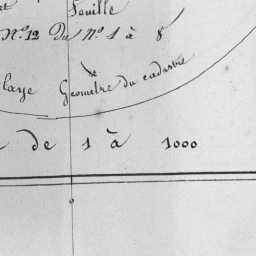 et Feuille
N.º 12 Du N.º 1 à 8
laye Géomètre du cadastre
de 1 à 1000